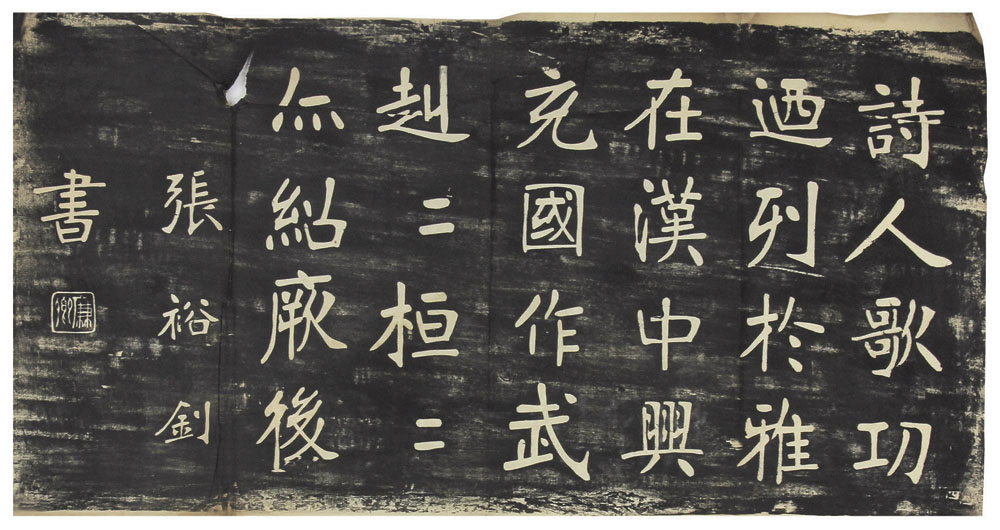 詩人歌功
迺列於雅
在漢中興
充國作武
赳二桓二
亦紹厥後
張裕釗
書
廉卿